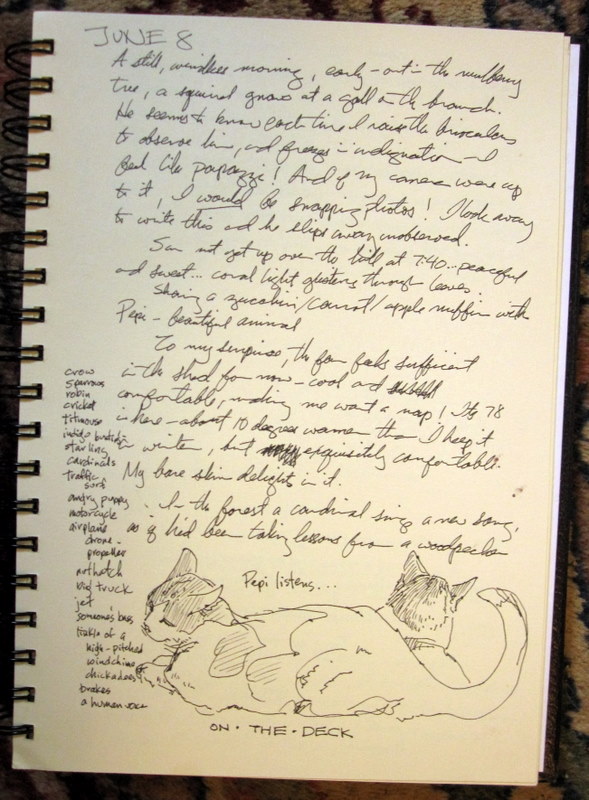 JUNE 8
A still, windless morning, early - out in the mulberry
tree, a squirrel gnaws at a gall on the branch.
He seems to know each time I raise the binoculars
to observe him, and freezes in indignation - I
feel like paparazzi! And if my camera were up
to it, I would be snapping photos! I look away
to write this and he slips away unobserved.
Sun not yet up over the hill at 7:40... peaceful
and sweet... coral light glistens through leaves.
Sharing a zucchini/carrot/apple muffin with
Pepi - beautiful animal
To my surprise, the fan feels sufficient
in the shed for now - cool and
comfortable, making me want a nap! It's 78
in here - about 10 degrees warmer than I keep it
in winter, but exquisitely comfortable.
My bare skin delights in it.
In the forest a cardinal sings a new song,
as if he'd been taking lessons from a woodpecker
crow
sparrows
robin
cricket
titmouse
indigo bunting
starling
cardinals
traffic
surf
angry puppy
motorcycle
airplane
drone -
propeller
nuthatch
big truck
jet
someone's bass
tinkle of a
high-pitched
windchime
chickadees
brakes
a human voice
Pepi listens...
ON • THE • DECK